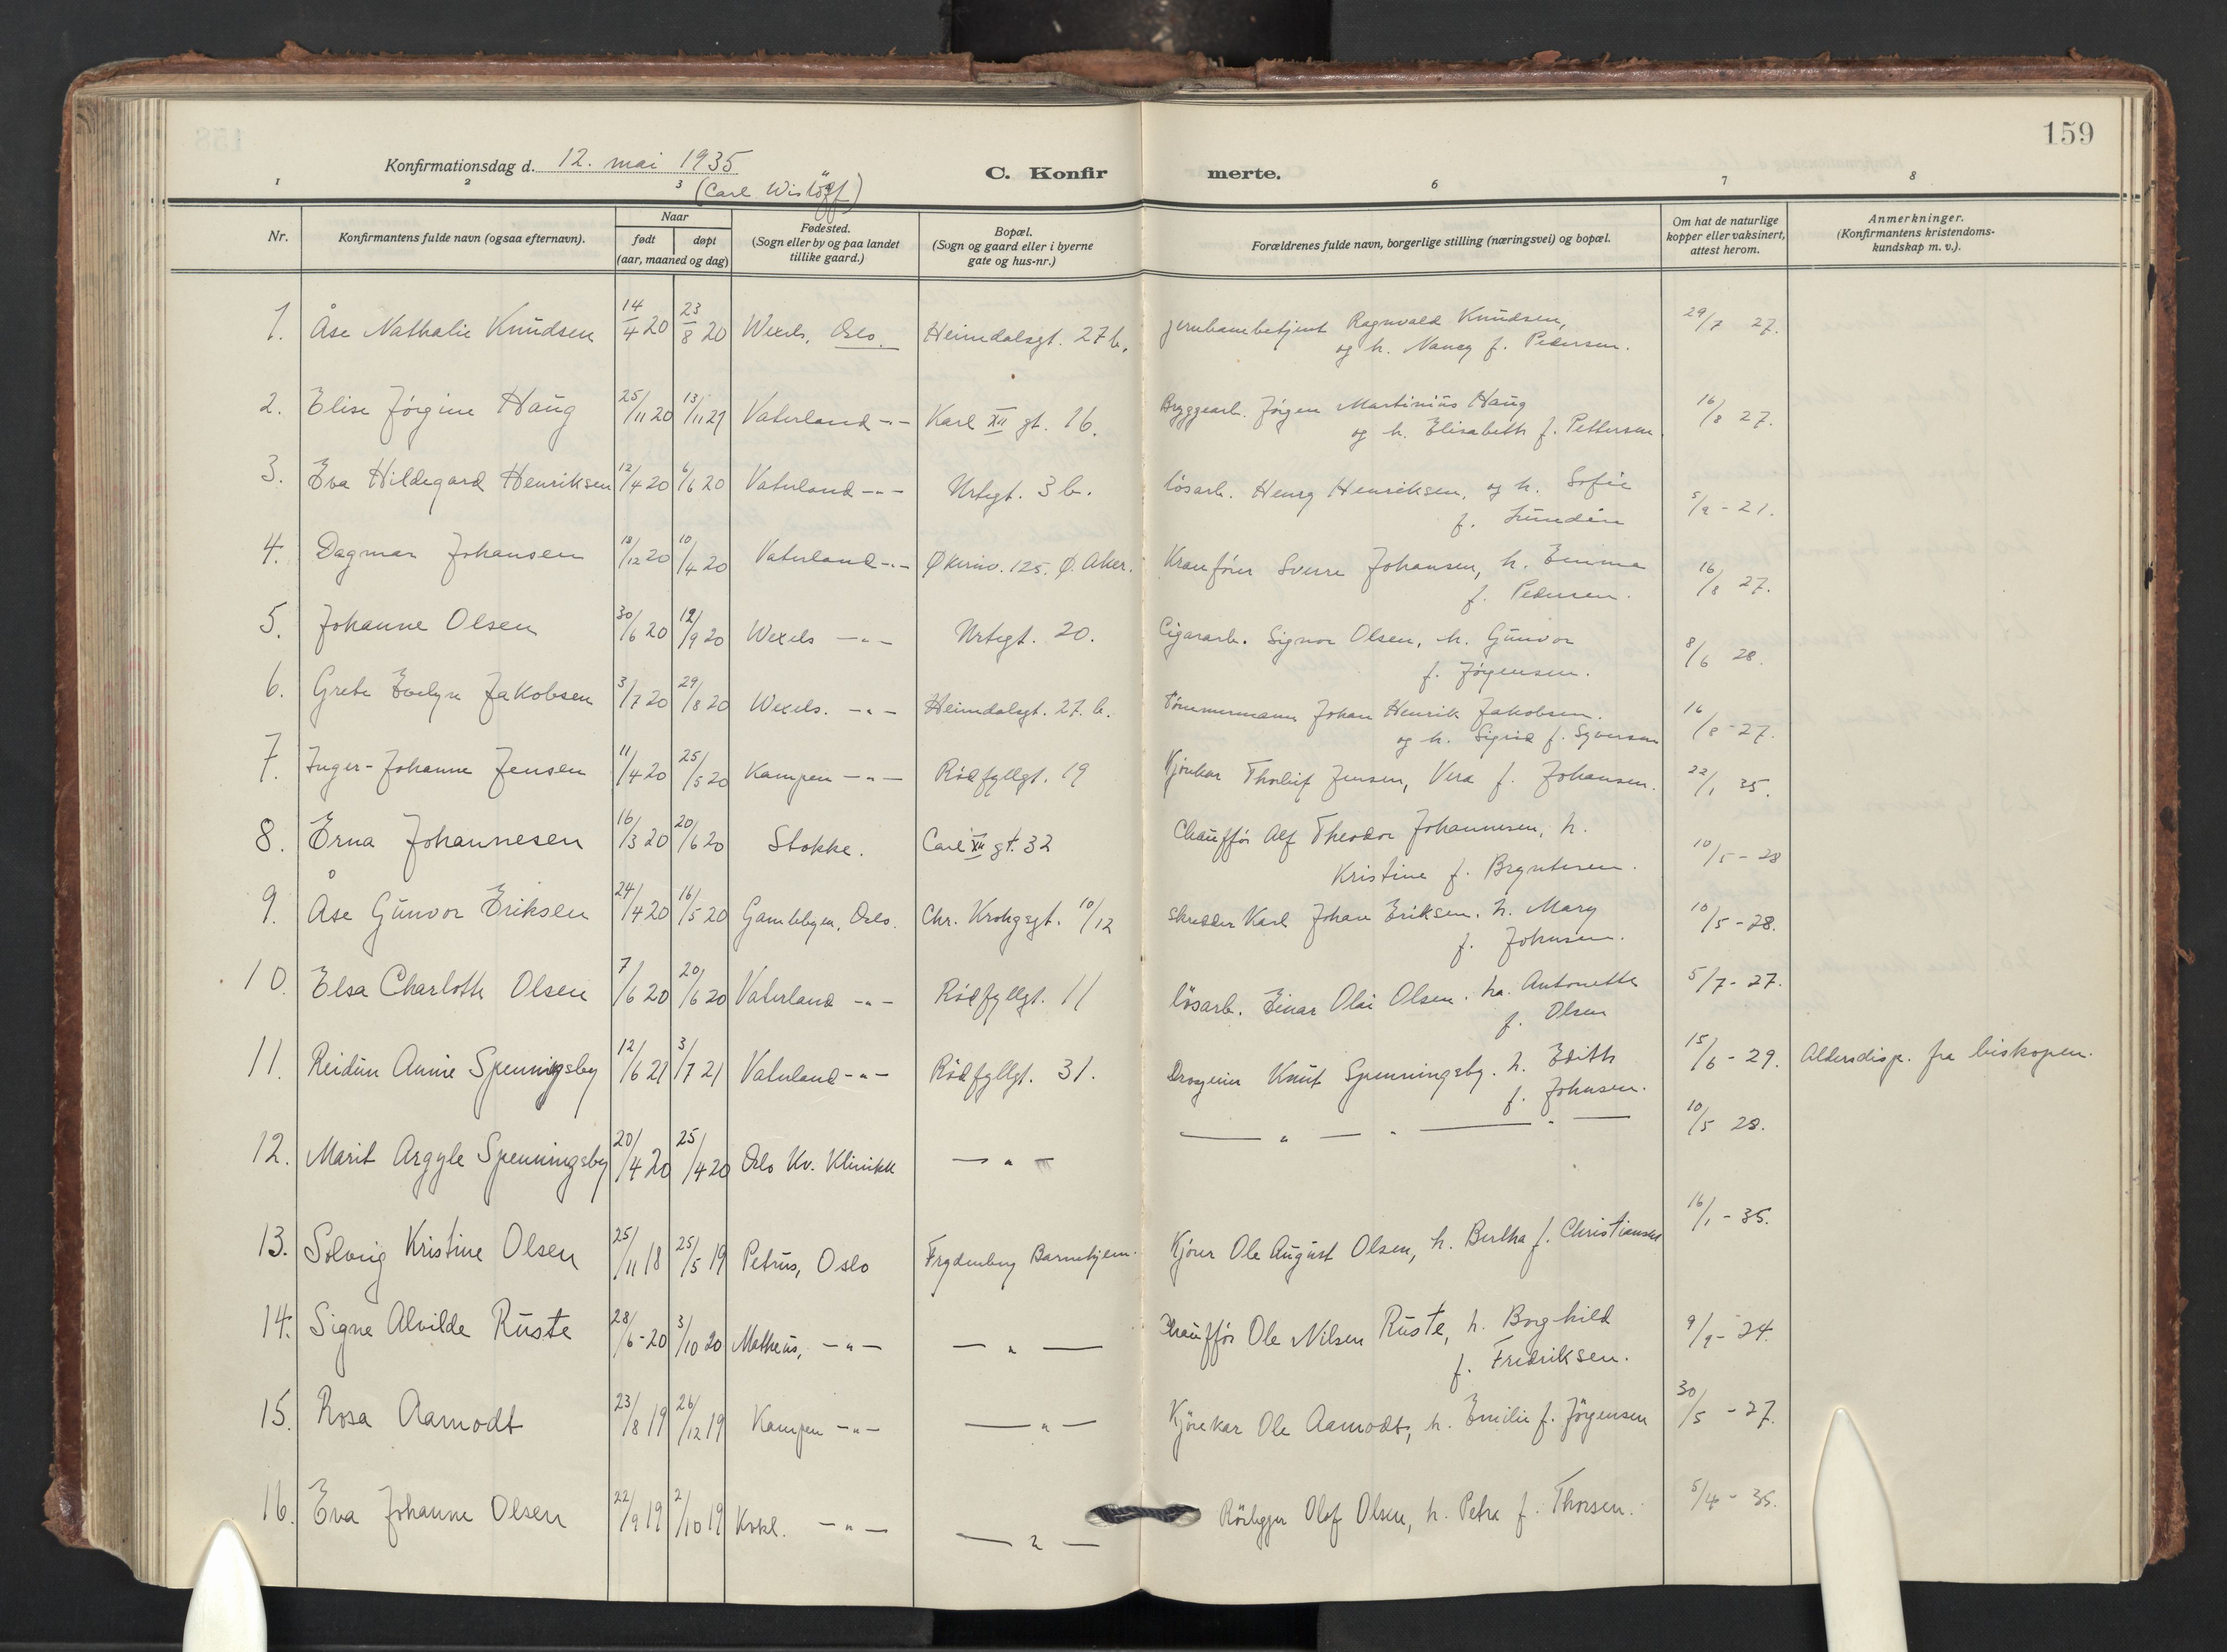 159
Konfirmationsdag d. 12. mai 1935
(Carl Wisløff)
C. Konfirmerte.
1 2 3 6 7 8
Nr. Konfirmantens fulde navn (ogsaa efternavn). Naar født døpt (aar, maaned og dag) Fødested. (Sogn eller by og paa landet tillike gaard.) Bopæl. (Sogn og gaard eller i byerne gate og hus-nr.) Forældrenes fulde navn, borgerlige stilling (næringsvei) og bopæl. Om hat de naturlige kopper eller vaksinert, attest herom. Anmerkninger. (Konfirmantens kristendoms-kundskap m. v.).
1. Åse Nathalie Knudsen 14/4 20 23/8 20 Wexels, Oslo. Heimdalsgt. 27 b. Jernbanebetjent Ragnvald Knudsen, 29/7 27.
og h. Nancy f. Pedersen.
2. Elise Jørgine Haug 25/11 20 13/11 21 Vaterland -"- Karl XII gt. 16. Bryggearb. Jørgen Martinius Haug 16/8 27.
og h. Elisabeth f. Pettersen.
3. Eva Hildegard Henriksen 12/4 20 6/6 20 Vaterland -"- Urtegt. 3 b. løsarb. Henry Henriksen, og h. Sofie 5/9 - 21.
f. Lundén
4. Dagmar Johansen 18/12 20 10/4 20 Vaterland -"- Økernv. 125. Ø. Aker. Kranfører Sverre Johansen, h. Emma 16/8 27.
f. Pedersen.
5. Johanne Olsen 30/6 20 12/9 20 Wexels -"- Urtegt. 20. Cigararb. Signor Olsen, h. Gunvor 8/6 28.
f. Jørgensen.
6. Grete Evelyn Jakobsen 3/7 20 29/8 20 Wexels. -"- Heimdalsgt. 27. b. Tømmermann Johan Henrik Jakobsen. 16/8 - 27.
og h. Sigrid f. Syversen
7. Inger-Johanne Jensen 11/4 20 25/5 20 Kampen -"- Rødfyllgt. 19 Kjørekar Thorleif Jensen, Vera f. Johansen. 22/1 35.
8. Erna Johannesen 16/3 20 20/6 20 Stokke. Carl XII gt. 32 Chauffør Alf Theodor Johannesen, h. 10/5 - 28
Kristine f. Bryntesen.
9. Åse Gunvor Eriksen 24/4 20 16/5 20 Gamlebyen, Oslo. Chr. Krohgsgt. 10/12 Skredder Karl Johan Eriksen. h. Mary 10/5 - 28.
f. Johnsen.
10. Elsa Charlotte Olsen 7/6 20 20/6 20 Vaterland -"- Rødfyllgt. 11 løsarb. Einar Olai Olsen. h. Antonette 5/7 - 27.
f. Olsen
11. Reidun Annie Spenningsby 12/6 21 3/7 21 Vaterland -"- Rødfyllgt. 31. Drosjeeier Knut Spenningsby. h. Edith 15/6 - 29. Aldersdisp. fra biskopen.
f. Johnsen.
12. Marit Argyle Spenningsby 20/4 20 25/4 20 Oslo Kv. Klinikk -"- -"- 10/5 28.
13. Solveig Kristine Olsen 25/11 18 25/5 19 Petrus, Oslo Frydenberg Barnehjem. Kjører Ole August Olsen, h. Bertha f. Christiansen 16/1 - 35.
14. Signe Alvilde Ruste 28/6 - 20 3/10 20 Matheus, -"- -"- Chauffør Ole Nilsen Ruste, h. Borghild 9/9 - 24.
f. Fredriksen.
15. Rosa Aamodt 23/8 19 26/12 19 Kampen -"- -"- Kjørekar Ole Aamodt, h. Emilie f. Jørgensen 30/5 - 27.
16. Eva Johanne Olsen 22/9 19 2/10 19 -"- -"- Rørlegger Olof Olsen, h. Petra f. Thorsen. 5/4 - 35.